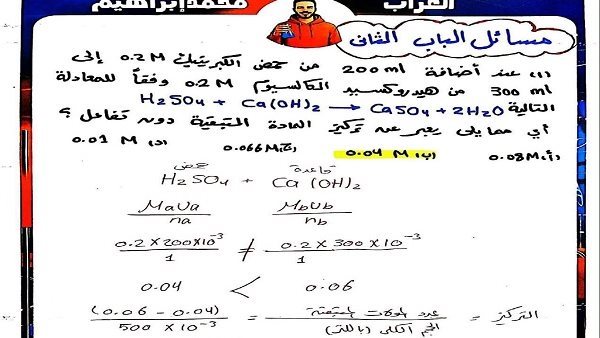 الغراب
محمد إبراهيم
مسائل الباب الثانى
(١) عند أضافة 200 ml من حمض الكبريتيك 0.2 M إلى
300 ml من هيدروكسيد الكالسيوم 0.2 M وفقاً للمعادلة
التالية H2SO4 + Ca(OH)2 → CaSO4 + 2H2O
أي مما يلى يعبر عن تركيز المادة المتبقية دون تفاعل ؟
(أ) 0.08M (ب) 0.04 M (ج) 0.066M (د) 0.01 M
حمض قاعدة
H2SO4 + Ca (OH)2
MaVa MbVb
na nb
0.2 X 200X10⁻³ ≠ 0.2 X 300 X 10⁻³
1 1
0.04 < 0.06
التركيز = عدد المولات المتبقية = (0.06 - 0.04)
الحجم الكلى (باللتر) 500 X 10⁻³